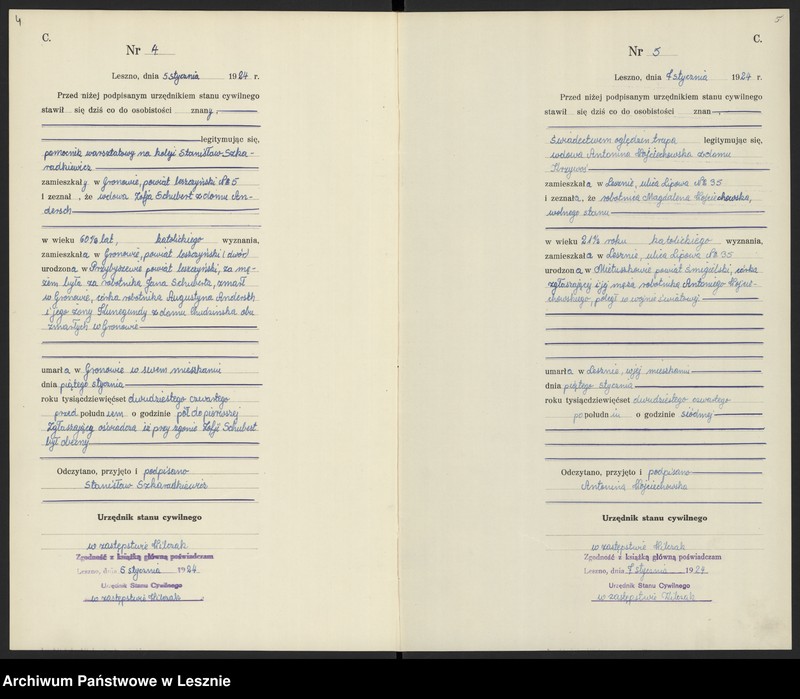 4
C.
Nr 4
Leszno, dnia 5 stycznia 1924 r.
Przed niżej podpisanym urzędnikiem stanu cywilnego
stawił się dziś co do osobistości znany,
legitymując się,
pomocnik warsztatowy na koleji Stanisław Szka-
radkiewicz
zamieszkały w Gronowie, powiat leszczyński № 5
i zeznał, że wdowa Zofja Schubert z domu An-
dersch
w wieku 60 lat, katolickiego wyznania,
zamieszkała w Gronowie, powiat leszczyński (dwór)
urodzona w Przybyszewie powiat leszczyński, za mę-
żem była za robotnika Jana Schuberta, zmarł
w Gronowie, córka robotnika Augustyna Andersch
i jego żony Kunegundy z domu obu
zmarłych w Gronowie
umarła w Gronowie w swem mieszkaniu
dnia piątego stycznia
roku tysiącdziewięćset dwudziestego czwartego
przed południem o godzinie pół do pierwszej
Zgłaszający oświadcza iż przy zgonie Zofji Schubert
był obecny
Odczytano, przyjęto i podpisano
Stanisław Szkaradkiewicz
Urzędnik stanu cywilnego
w zastępstwie
Zgodność z książką główną poświadczam
Leszno, dnia 5 stycznia 1924.
Urzędnik Stanu Cywilnego
w zastępstwie
5
C.
Nr 5
Leszno, dnia 7 stycznia 1924 r.
Przed niżej podpisanym urzędnikiem stanu cywilnego
stawił się dziś co do osobistości znan
świadectwem oględzin trupa legitymując się,
wdowa Antonina Wojciechowska z domu
zamieszkała w Lesznie, ulica Lipowa № 35
i zeznała, że robotnica Magdalena Wojciechowska,
wolnego stanu
w wieku 21 roku katolickiego wyznania,
zamieszkała w Lesznie, ulica Lipowa № 35
urodzona w powiat śmigielski, córka
zgłaszającej i jej męża robotnika Antoniego Wojcie-
chowskiego, poległ w wojnie światowej
umarła w Lesznie, w jej mieszkaniu
dnia piątego stycznia
roku tysiącdziewięćset dwudziestego czwartego
po południu o godzinie siódmej
Odczytano, przyjęto i podpisano
Antonina Wojciechowska
Urzędnik stanu cywilnego
w zastępstwie
Zgodność z książką główną poświadczam
Leszno, dnia 7 stycznia 1924
Urzędnik Stanu Cywilnego
w zastępstwie
Archiwum Państwowe w Lesznie